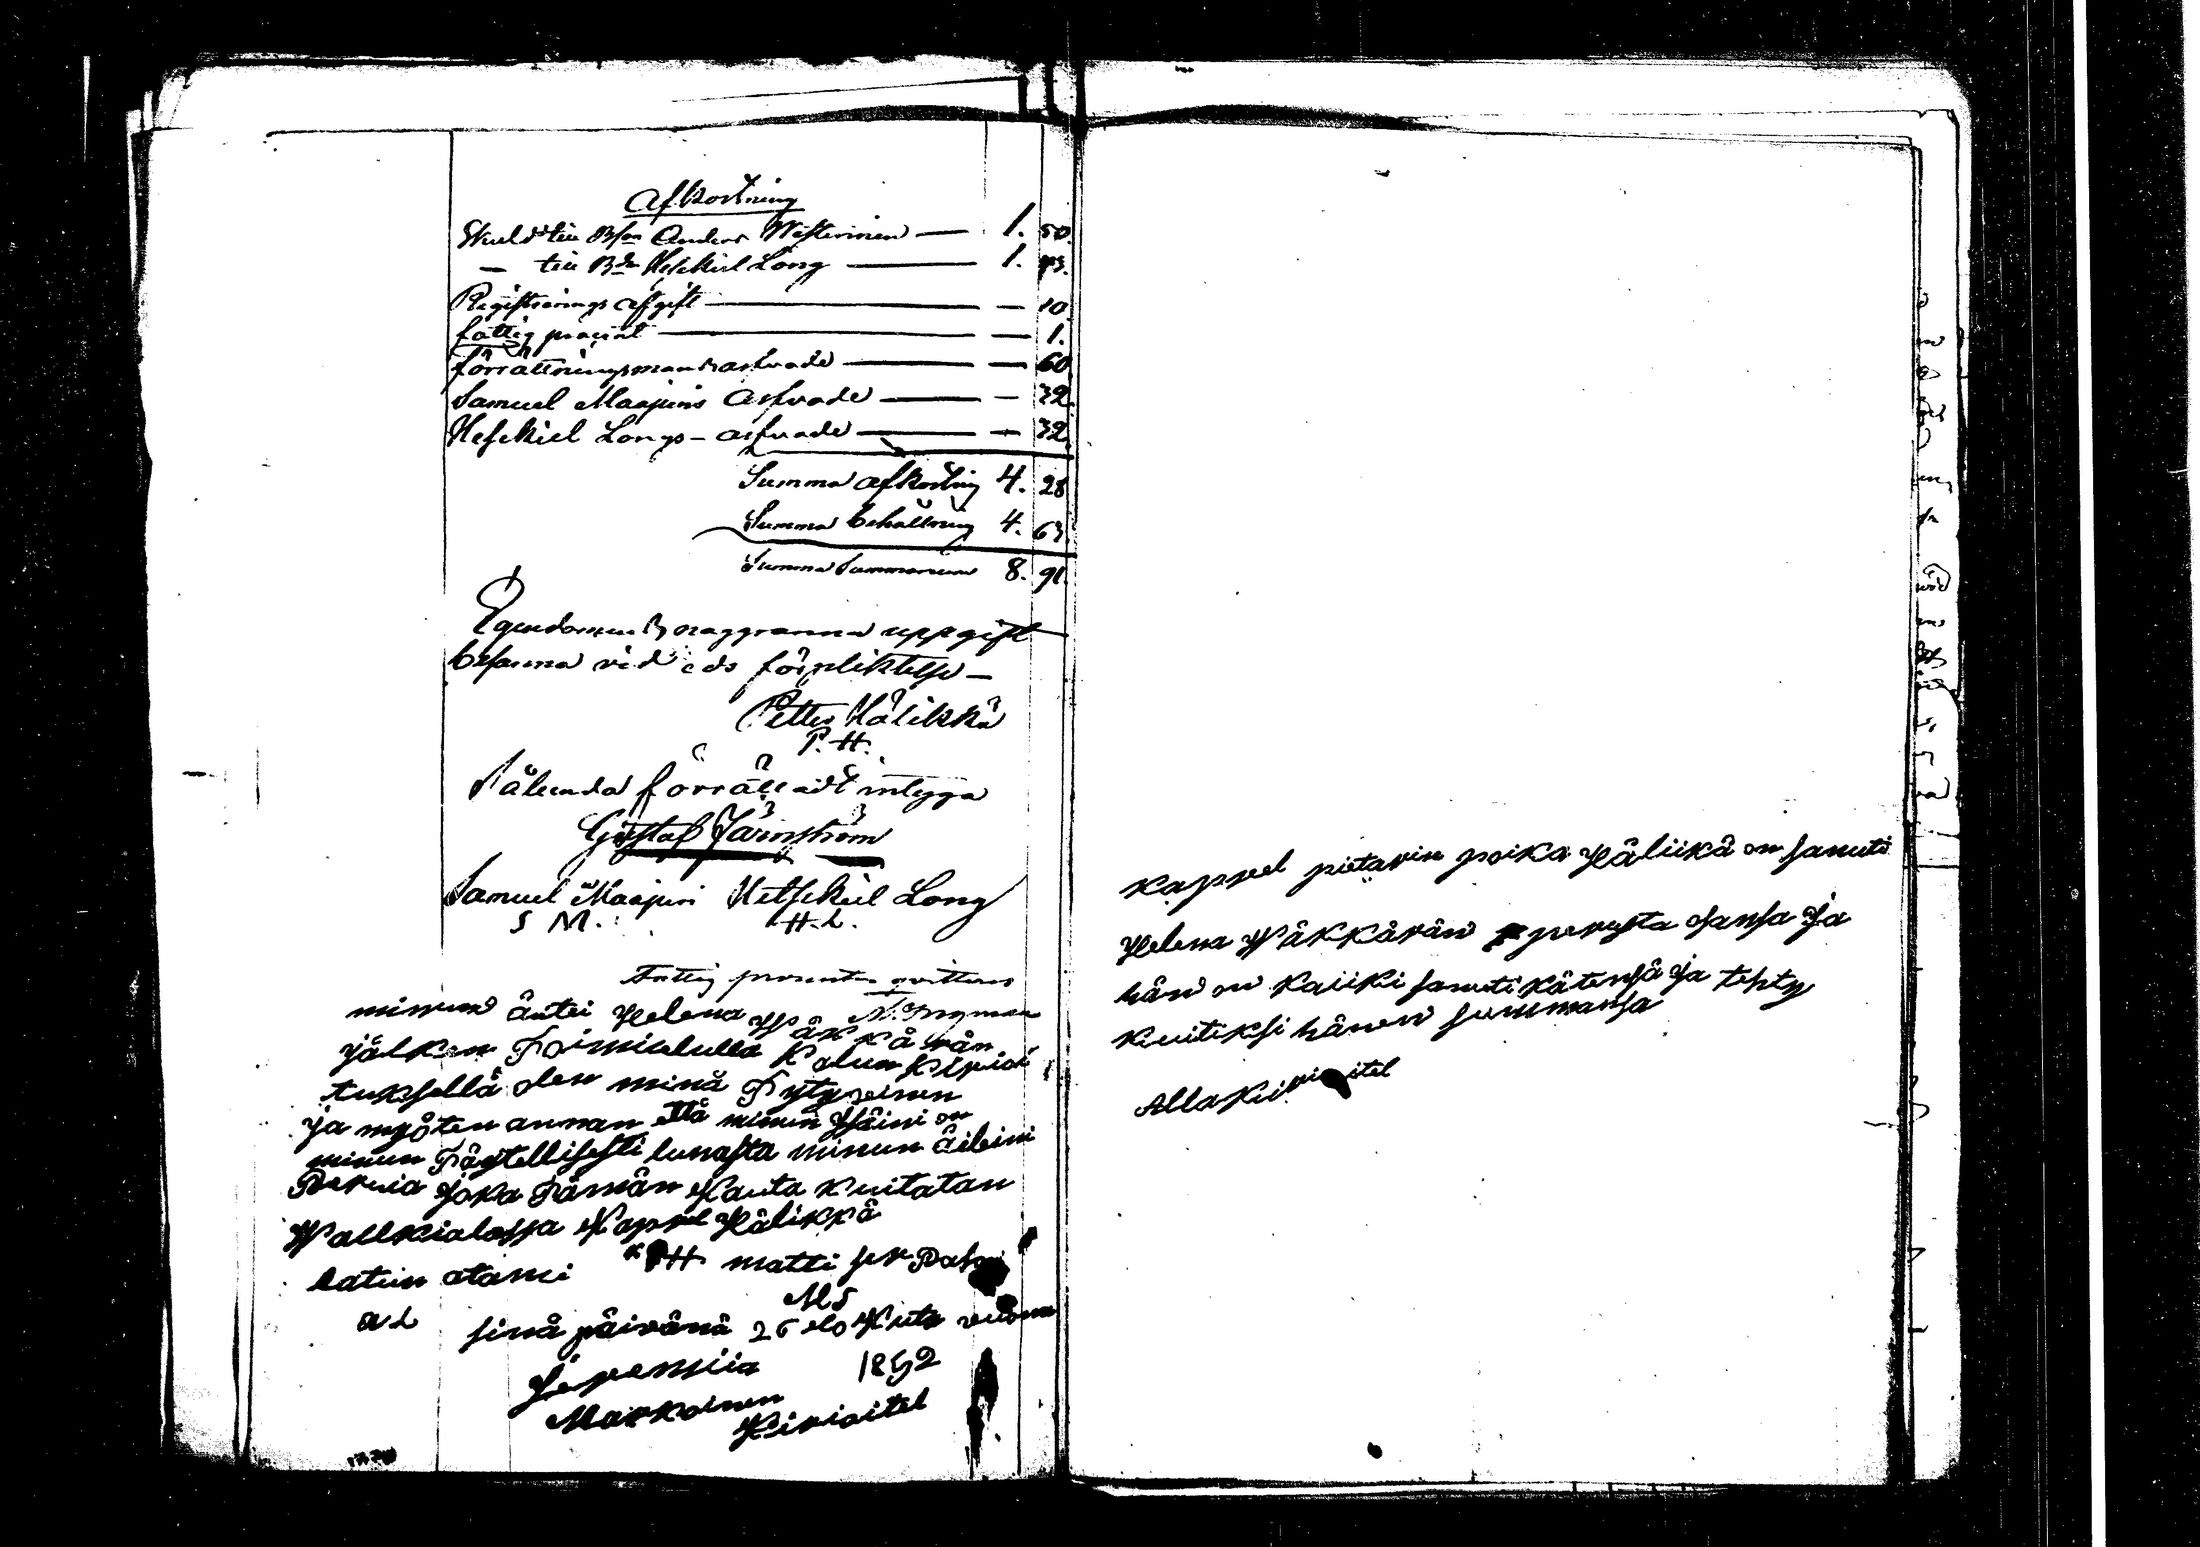 Afkortning
Skuld till Bon Anders Westerinen — 1. 50.
— till Bd Hesekiel Long — 1. 43.
Registrerings afgift — — 10.
fattig procent — — 1.
förrättningsmans arfvode — — 60.
Samuel Maajuris arfvode — — 32.
Hesekiel Longs arfvode — — 32.
Summa afkortning 4. 28
Summa behållning 4. 63.
Summa Summarum 8. 91.
Egendomens noggranna uppgift
besanna vid eds förpliktelse —
Petter Hälikkä
P. H.
Sålunda förrättadt intyga
Gustaf Järnström
Samuel Maajuri Hetsekiel Long
S M. H. L.
Fattig procenten qvitteras
minun äitei Helena Wäkkärän
jälken Toimitetulla Kalun Kirioi
tuksella olen minä Tytyveinen
ja myöten annan että minun Isäini on
minun Täytellisesti lunasta minun äiteini
Peruia joka Tämän Kauta Kuitatan
Walkialassa Kappel Hälikkä
K H matti
latein atami
M S
a L sinä päivänä 26 elo Kuta vuonna
1892
Jeremiia
Markoinen Kirioitel
Kappel pietarin poika Häliikä on sanuti
Helena Wäkkärän perusta osansa ja
hän on kaiiki sanuti kätensä ja tehty
Kuitiksi hänen summansa
AllaKirioitel